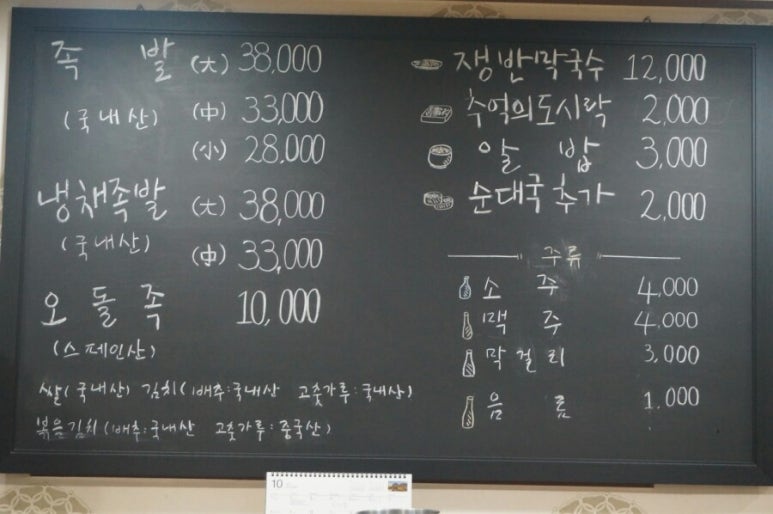 족 발 (大) 38,000
(국내산) (中) 33,000
(小) 28,000
냉채족발 (大) 38,000
(국내산) (中) 33,000
오돌족 10,000
(스페인산)
쌀(국내산) 김치(배추:국내산 고춧가루:국내산)
볶음김치(배추:국내산 고춧가루:중국산)
쟁반막국수 12,000
추억의도시락 2,000
알 밥 3,000
순대국추가 2,000
주류
소 주 4,000
맥 주 4,000
막걸리 3,000
음 료 1,000
10